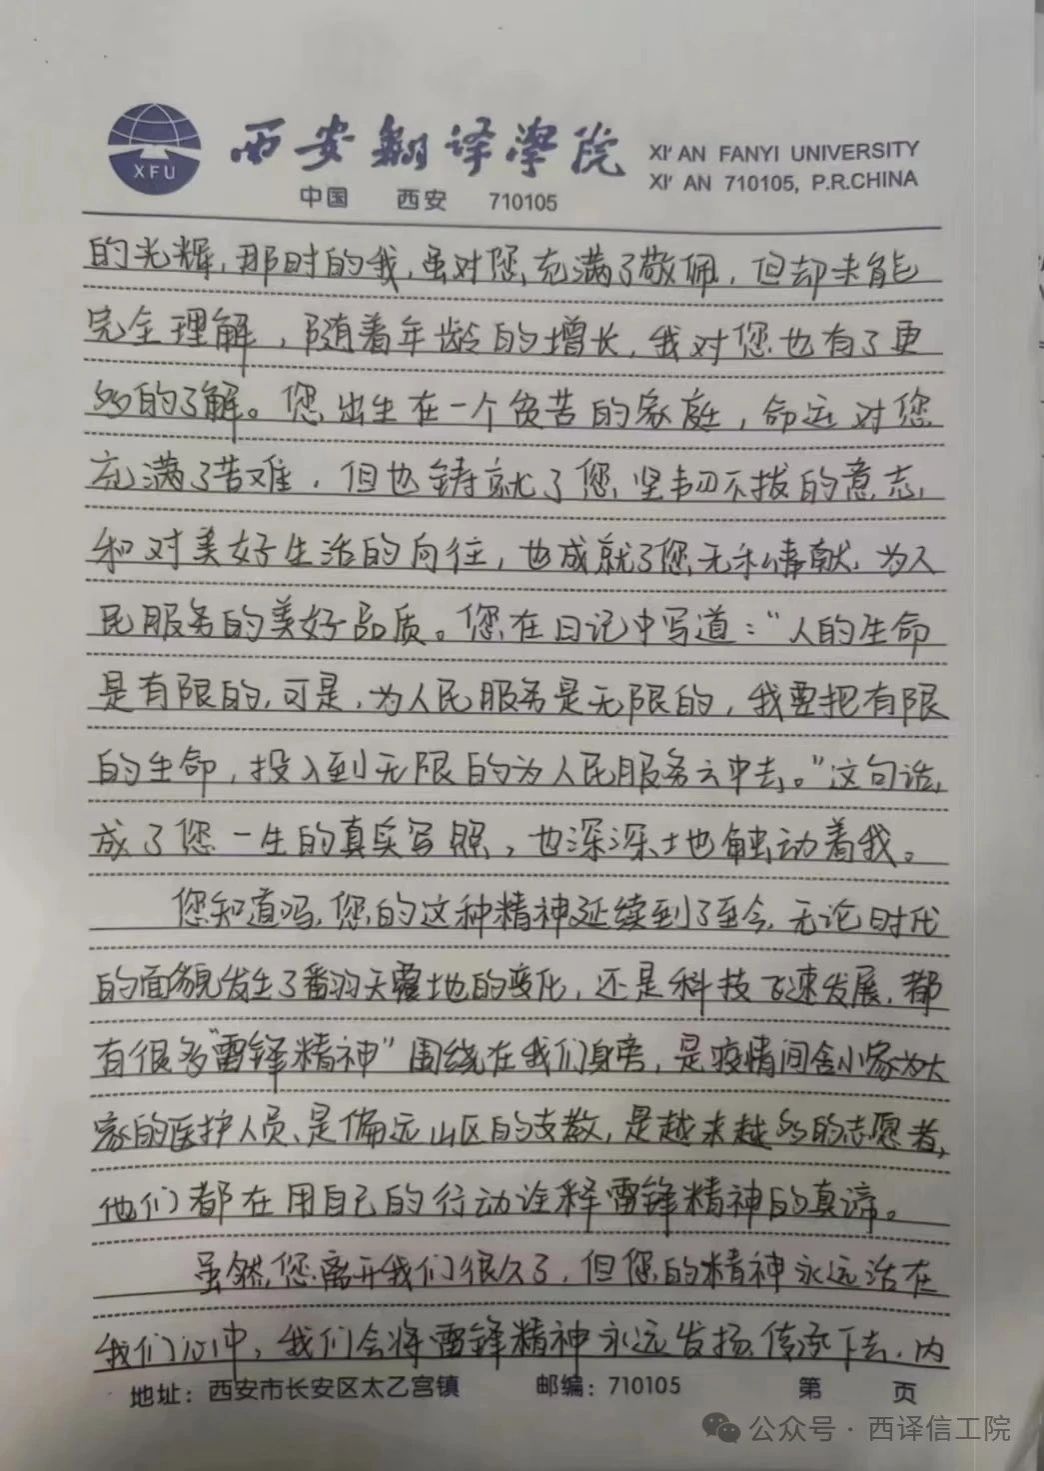 西安翻译学院
XI' AN FANYI UNIVERSITY
XFU
中国 西安 710105
XI' AN 710105, P.R.CHINA
的光辉,那时的我,虽对您充满了敬佩,但却未能
完全理解,随着年龄的增长,我对您也有了更
多的了解。您出生在一个贫苦的家庭,命运对您
充满了苦难,但也铸就了您坚韧不拔的意志,
和对美好生活的向往,也成就了您无私奉献,为人
民服务的美好品质。您在日记中写道:“人的生命
是有限的,可是,为人民服务是无限的,我要把有限
的生命,投入到无限的为人民服务之中去。”这句话,
成了您一生的真实写照,也深深地触动着我。
您知道吗,您的这种精神延续到了至今,无论时代
的面貌发生了翻天覆地的变化,还是科技飞速发展,都
有很多“雷锋精神”围绕在我们身旁,是疫情间舍小家为大
家的医护人员、是偏远山区的支教,是越来越多的志愿者,
他们都在用自己的行动诠释雷锋精神的真谛。
虽然,您离开我们很久了,但您的精神永远活在
我们心中,我们会将雷锋精神永远发扬传承下去,内
地址:西安市长安区太乙宫镇 邮编:710105 第 页
公众号·西译信工院